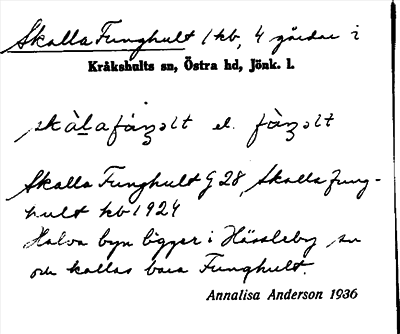 Skalla Funghult 1 kb, 4 gårdar i
Kråkshults sn, Östra hd, Jönk. l.
skàlafàŋəlt el. fàŋəlt
Skalla Funghult G 28, Skalla Fung-
hult kb 1924
Halva byn ligger i Hässleby sn
och kallas bara Funghult.
Annalisa Anderson 1936